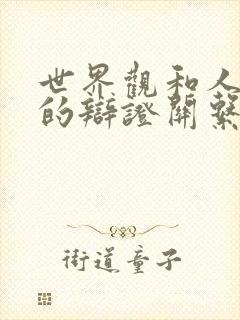 世界觀和人
的辯證關繫
街道童子